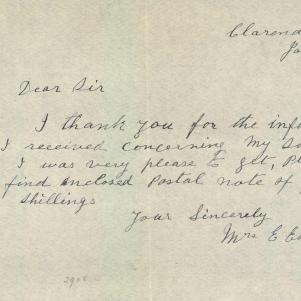 Clarend
Ja
Dear Sir
I thank you for the info
I received concerning My S
I was very please to get, Pl
find enclosed Postal note of
Shillings
Your Sincerely
Mrs E E